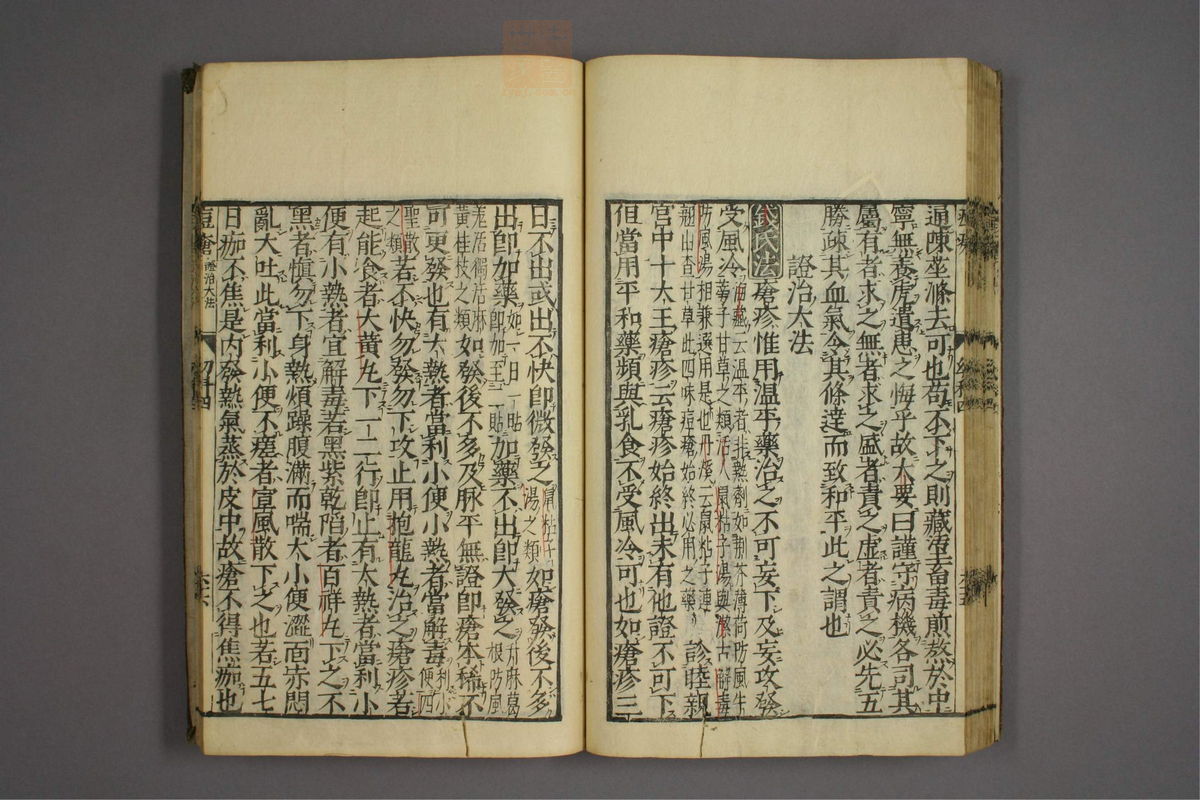 通疎坐滌去可也苟不下之則藏蓄毒煎熬於中
寧無養虎遺患之悔乎故大要曰謹守病機各司其
屬有者求之無者求之盛者責之虛者責之必先五
勝疎其血氣令其條達而致和平此之謂也
證治大法
錢氏法瘡疹惟用溫平藥治之不可妄下及妄攻發
受風冷海藏云溫平者非熱劑如荆芥薄荷防風牛
蒡子甘草之類活人鼠粘子湯與潔古解毒
防風湯相兼選用是也丹溪云鼠粘子連
翹山查甘草此四味痘瘡始終必用之藥診睦親
宮中十大王瘡疹云瘡疹始終出未有他證不可下
但當用平和藥頻與乳食不受風冷可也如瘡疹三
日不出或出不快卽微發之鼠粘子
湯之類如瘡發後不多
出卽加藥如一日一貼
卽加至二貼加藥不出卽大發之升麻葛
根防風
羌活獨活麻
黃桂枝之類如發後不多及脉平無證卽瘡本稀不
可更發也有大熱者當利小便小熱者當解毒利小
便四
聖散
之類若不快勿發勿下攻止用抱龍丸治之瘡疹者
起能食者大黃丸下一二行卽止有大熱者當利小
便有小熱者宜解毒若黑紫乾陷者百祥丸下之不
黑者愼勿下身熱煩躁腹滿而喘大小便澀面赤悶
亂大吐此當利小便不瘥者宣風散下之也若五七
日痂不焦是內發熱氣蒸於皮中故瘡不得焦痂也
痘瘡 證治大法